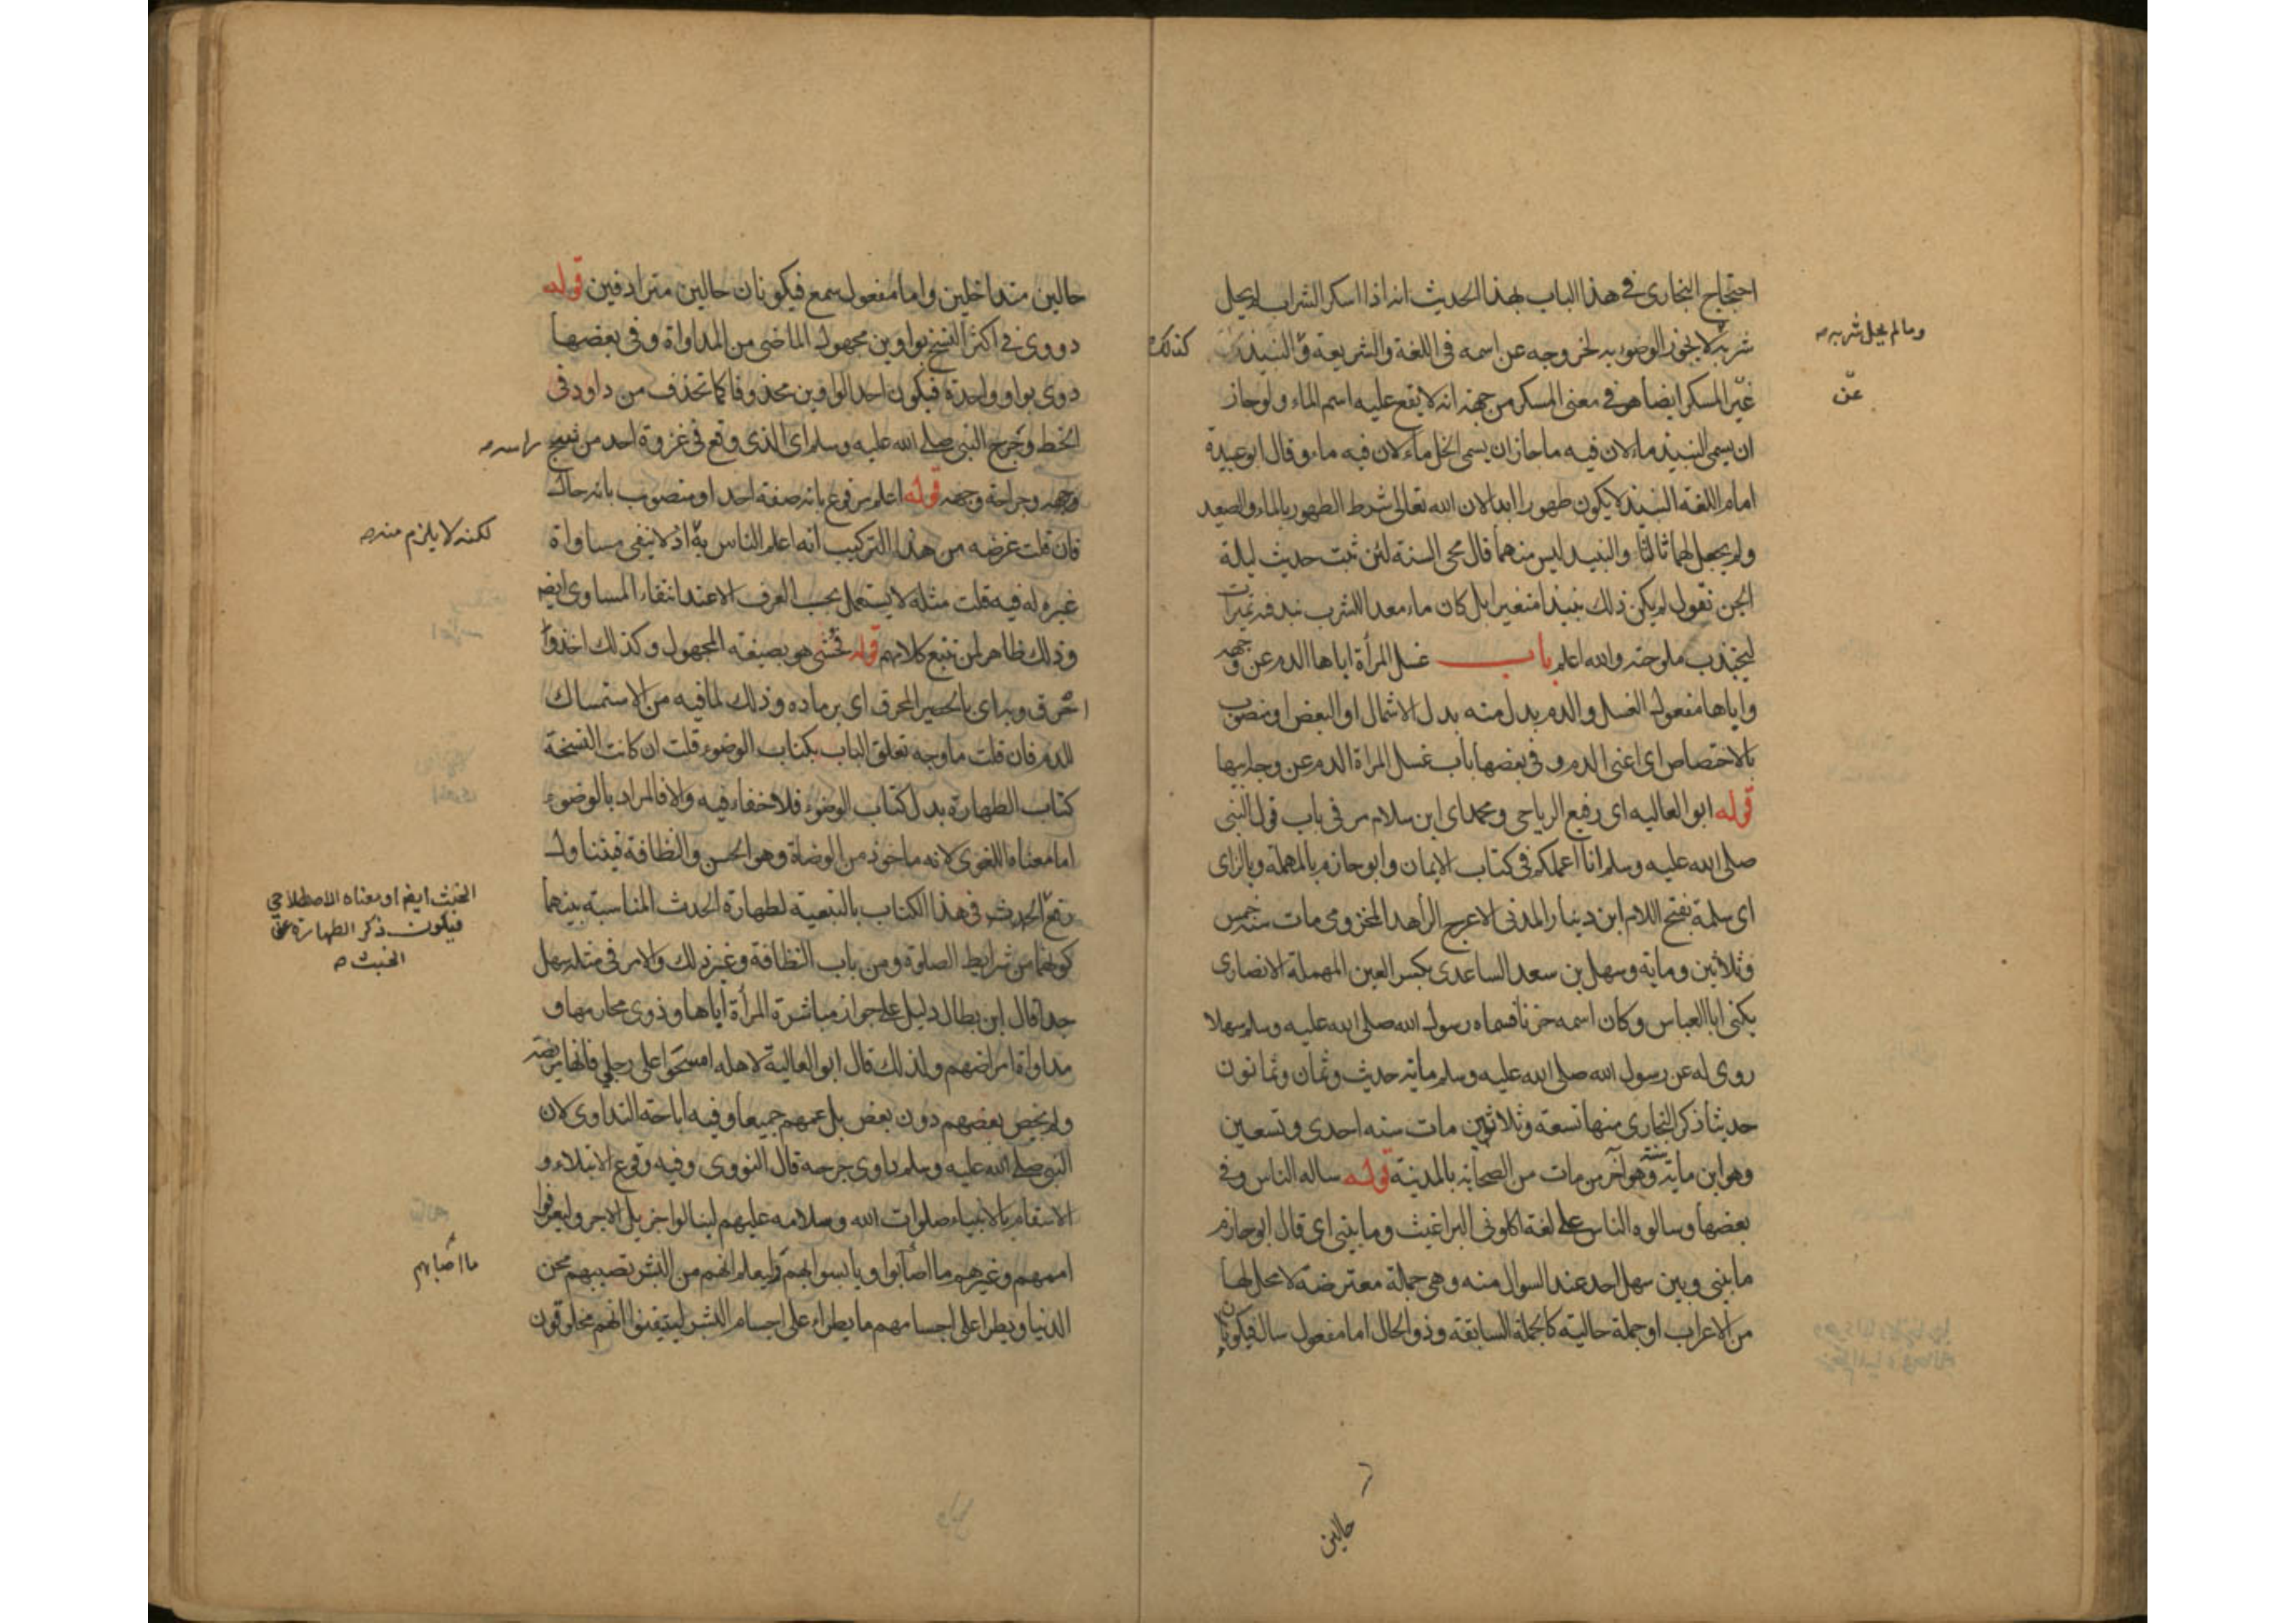 احتجاج البخارى فى هذا الباب بهذا الحديث انه اذا اسكر الشراب لم يحل
شربه لا يجوز الوضوء به لخروجه عن اسمه فى اللغة والشريعة والنبيذ
غير المسكر ايضا هو فى معنى المسكر من جهة انه لا يقع عليه اسم الماء ولو جاز
ان يسمى النبيذ ماء لان فيه ما جاز ان يسمى الخل ماء لان فيه ماء وقال ابو عبيدة
امام اللغة النبيذ لا يكون طهورا ابدا لان الله تعالى شرط الطهور بالماء والصعيد
ولم يجعل لهما ثالثا والنبيذ ليس منهما قال محى السنة لئن ثبت حديث ليلة
الجن نقول لم يكن ذلك نبيذا متغيرا بل كان ماء معدا للشرب نبذ فيه تميرات
ليجتذب ملوحته والله اعلم باب غسل المرأة اباها الدم عن وجهه
واباها مفعول الغسل والدم بدل منه بدل الاشتمال او البعض او منصوب
بالاختصاص اى اعنى الدم وفى بعضها باب غسل المراة الدم عن وجه ابيها
قوله ابو العاليه اى رفيع الرياحى ومحمد اى ابن سلام مر فى باب قول النبى
صلى الله عليه وسلم انا اعلمكم فى كتاب الايمان وابو حازم بالمهملة وبالزاى
اى سلمة بفتح اللام ابن دينار المدنى الاعرج الزاهد المخزومى مات سنة خمس
وثلاثين وماية وسهل بن سعد الساعدى بكسر العين المهملة الانصارى
يكنى ابا العباس وكان اسمه حزنا فسماه رسول الله صلى الله عليه وسلم سهلا
روى له عن رسول الله صلى الله عليه وسلم ماية حديث وثمان وثمانون
حديثا ذكر البخارى منها تسعة وثلاثين مات سنه احدى وتسعين
وهو ابن ماية سنة وهو آخر من مات من الصحابة بالمدينة قوله ساله الناس وفى
بعضها وسالوه الناس على لغة اكلونى البراغيث وما بينى اى قال ابو حازم
ما بينى وبين سهل احد عند السوال منه وهى جملة معترضة لا محل لها
من الاعراب او جملة حالية كالجملة السابقة وذو الحال اما مفعول سال فيكونان
وما لم يحل شربه صح
كذلك
عن
حالين
حالين متداخلين واما مفعول سمع فيكونان حالين مترادفين قوله
دووى فى اكثر النسخ بواوين مجهول الماضى من المداواة وفى بعضها
دوى بواو واحدة فيكون احد الواوين محذوفا كما تحذف من داود فى
الخط وجرح النبى صلى الله عليه وسلم اى الذى وقع فى غزوة احد من شج
وجهه وجراحة وجهه قوله اعلم مرفوع بانه صفة احد او منصوب بانه حال
فان قلت غرضه من هذا التركيب انه اعلم الناس به اذ لا ينفى مساواة
غيره له فيه قلت مثله لا يستعمل بحسب العرف الا عند انتفاء المساوى ايضا
وذلك ظاهر لمن تتبع كلامهم قوله فحشى هو بصيغة المجهول وكذلك اخذوا
احرق وبه اى بالحصير المحرق اى برماده وذلك لما فيه من الاستمساك
للدم فان قلت ما وجه تعلق الباب بكتاب الوضوء قلت ان كانت النسخة
كتاب الطهارة بدل كتاب الوضوء فلا خفاء فيه والا فالمراد بالوضوء
اما معناه اللغوى لانه ماخوذ من الوضاة وهو الحسن والنظافة فيتناول
رفع الحدث فى هذا الكتاب بالتبعية لطهارة الحدث المناسبة بينهما
كونهما من شرايط الصلوة ومن باب النظافة وغير ذلك والامر فى مثله سهل
جدا قال ابن بطال دليل على جواز مباشرة المرأة اباها وذوى محارمها و
مداواة امراضهم ولذلك قال ابو العالية لاهله امسحوا على رجلى فانها مريضة
ولم يخص بعضهم دون بعض بل عمهم جميعا وفيه اباحة التداوى لان
النبى صلى الله عليه وسلم داوى جرحه قال النووى وفيه وقوع الابتلاء و
الاسقام بالانبياء صلوات الله وسلامه عليهم لينالوا جزيل الاجر وليعرفوا
اممهم وغيرهم ما اصابوا ويأتسوا بهم وليعلم انهم من البشر تصيبهم محن
الدنيا ويطرا على اجسامهم ما يطراء على اجسام البشر ليتيقنوا انهم مخلوقون
راسه صح
لكنه لا يلزم منه صح
الخبث ايضا او معناه الاصطلاحى
فيكون ذكر الطهارة عن
الخبث صح
ما اصابهم